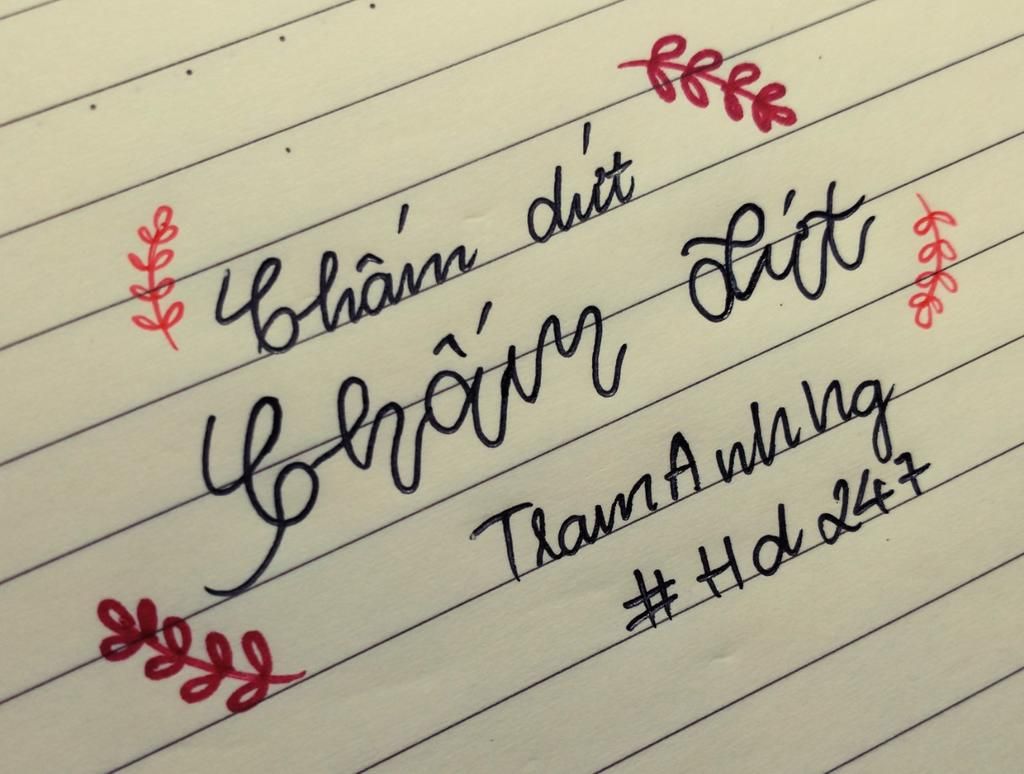 Chấm dứt
Chấm dứt
TramAnhng
#Hd247